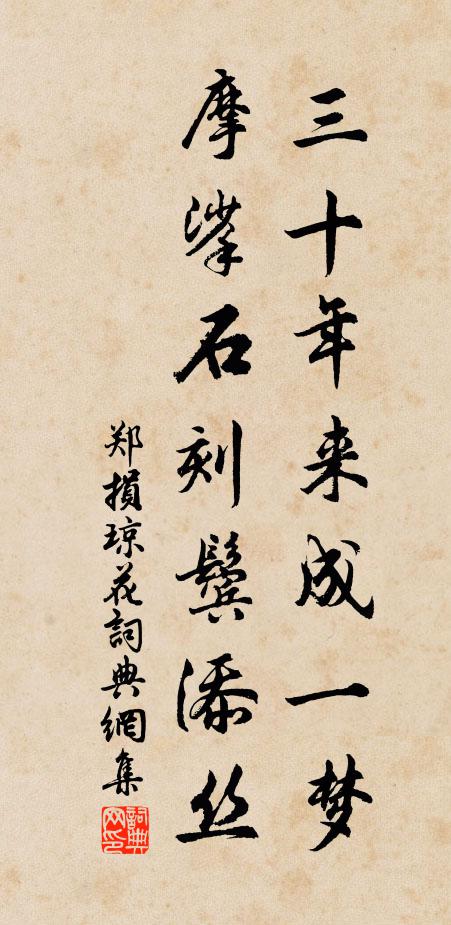 三十年来成一梦
摩挲石刻鬓添丝
郑损琼花词典網集
詞典网印